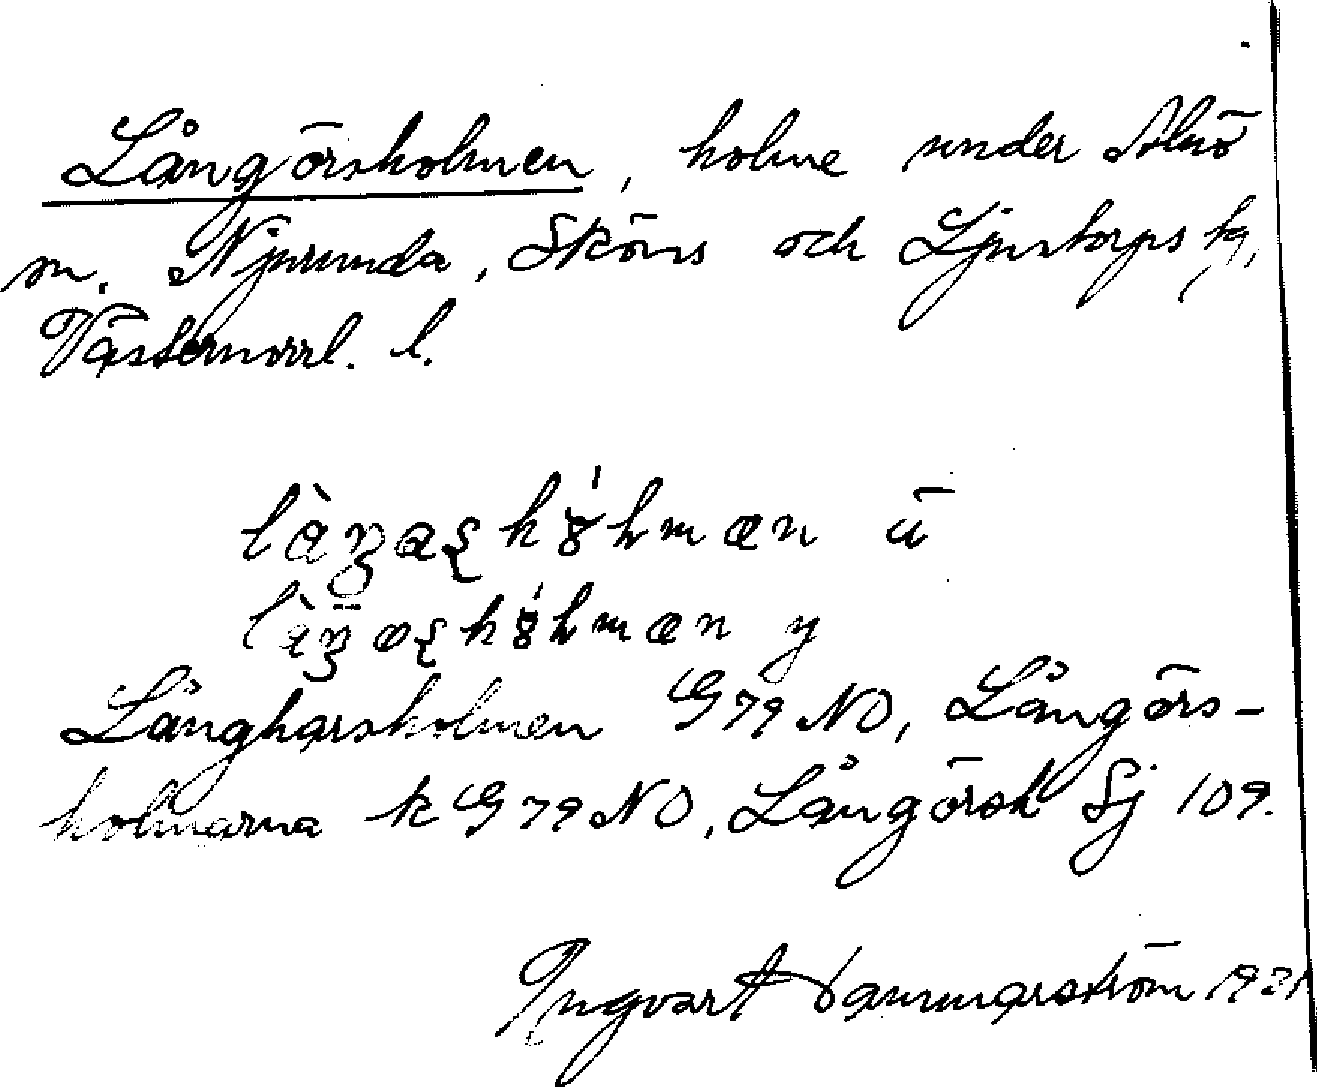 Långörsholmen, holme under Alnö
m. Njurunda, Sköns och Ljustorps tg,
Västernorrl. l.
ū
y
Långharsholmen G 79 NO, Långörs-
holmarna k G 79 NO, Långörsh Sj 109.
Ingvart Hammarström 1931